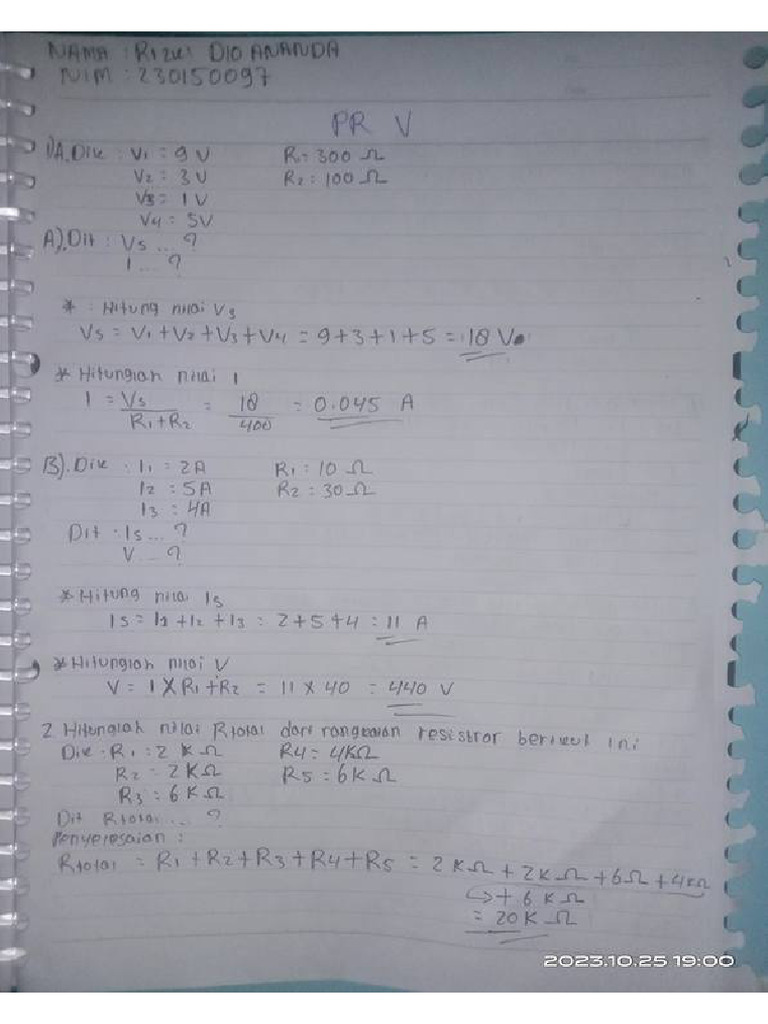 NAMA : Rizki DIO ANANDA
NIM : 230150097
PR V
1)A. Dik : V1 = 9 V R1 = 300 Ω
V2 = 3 V R2 = 100 Ω
V3 = 1 V
V4 = 5V
A). Dit : Vs ... ?
I ... ?
* : Hitung nilai Vs
Vs = V1 + V2 + V3 + V4 = 9 + 3 + 1 + 5 = 18 V
* Hitunglah nilai I
I = Vs / R1 + R2 = 18 / 400 = 0.045 A
B). Dik : I1 = 2A R1 = 10 Ω
I2 = 5A R2 = 30 Ω
I3 = 4A
Dit : Is ... ?
V ... ?
* Hitung nilai Is
Is = I1 + I2 + I3 = 2 + 5 + 4 = 11 A
* Hitunglah nilai V
V = I X R1 + R2 = 11 X 40 = 440 V
2 Hitunglah nilai Rtotal dari rangkaian resistror berikut ini
Dik : R1 = 2 KΩ R4 = 4KΩ
R2 = 2KΩ R5 = 6KΩ
R3 = 6 KΩ
Dit Rtotal ... ?
Penyelesaian :
Rtotal = R1 + R2 + R3 + R4 + R5 = 2 KΩ + 2KΩ + 6Ω + 4KΩ
↪ + 6 KΩ
= 20 K Ω
2023.10.25 19:00